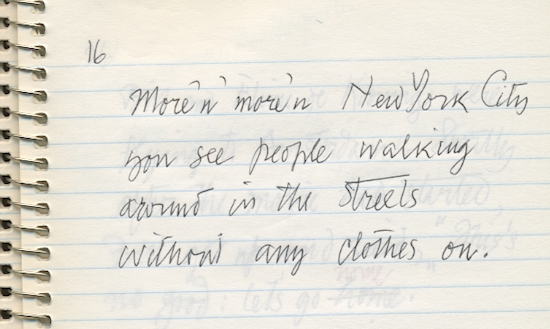 16
More 'n' more 'n New York City
you see people walking
around in the streets
without any clothes on.